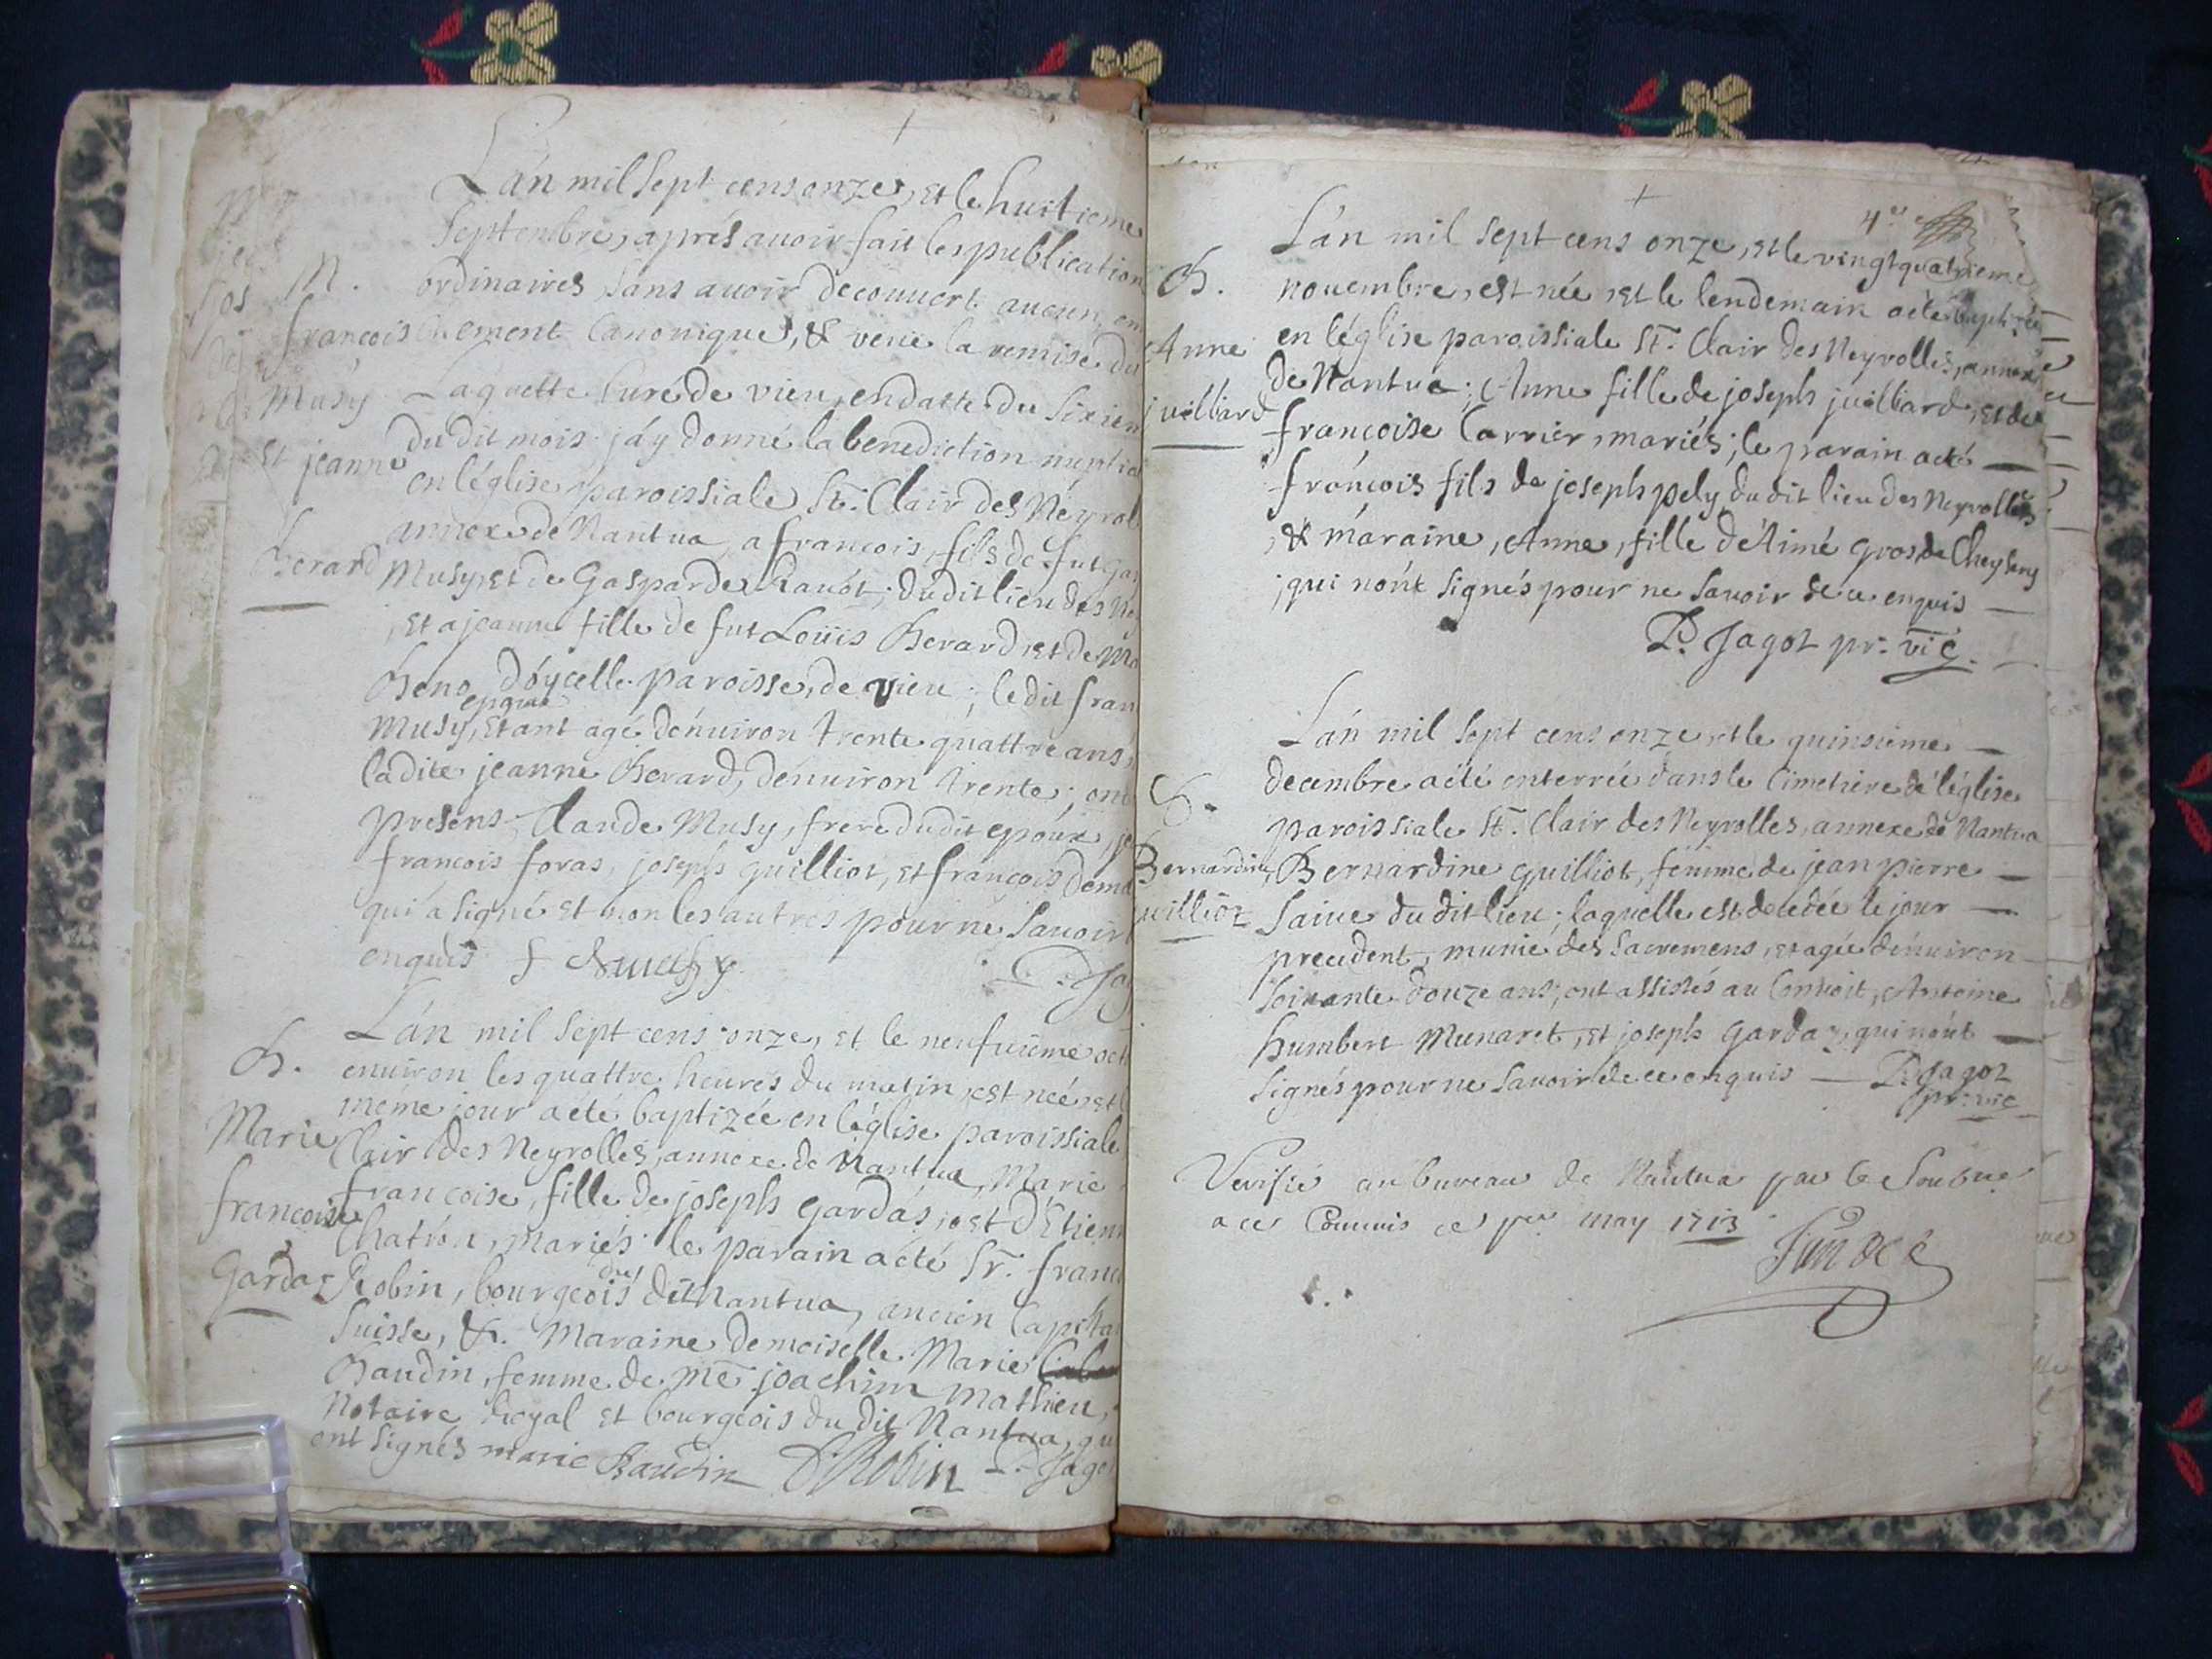 L'án mil sept cens onze, et le huitieme
Septembre, aprés auoir fait les publication
M.
ordinaires, sans auoir decouuert aucun em
françois
chement Canonique, & veüe la remise du
Musy
Laguette Curé de vieu, en datte du sixiem
du dit mois j'ay donné la benediction nuptia
Et jeanne
en léglise paroissiale St. Clair des Neyrol
annexe de Nantua, a françois, fils de fut Gas
Berard
Musy, et de Gasparde Rauót; dudit lieu des Ne
, Et a jeanne fille de fut Loüis Berard, et de Ma
Beno d'óycelle paroisse, de vieu; le dit fran
epoux
Musy, Etant agé dénuiron trente quattre ans,
ladite jeanne Berard, dénuiron trente; ont
presens, Claude Musy, frere dudit epóux, je
francois foras, joseph guilliot, et françois
qui a signé et non les autres pour ne sauoir
enquis
P. Jag
L'án mil sept cens onze, et le neufuieme oct
B.
enuiron les quattre heures du matin, est née, et
meme jour a été baptizée en léglise paroissiale
Marie
Clair des Neyrolles, annexe de Nantua, Marie
francoise
francoise, fille de joseph gardás, et d'Etienn
Chatrón, mariés; le parain a été Sr. franc
Gardas
du
Robin, bourgeois dit Nantua, ancien Capitai
Suisse, &. Maraine demoiselle Marie
Baudin, femme de Me joachim Mathieu,
Notaire Royal et bourgeois du dit Nantua, qu
ont signés marie Baudin D. Robin P. Jago
4e
L'án mil sept cens onze, et le vingtquatrieme
B.
nouembre, est née, et le lendemain a été baptizée
Anne
en léglise paroissiale St. Clair des Neyrolles, annexe
de Nantua; Anne fille de joseph juilliard, et de
juilliard
françoise Carrier, mariés; le parain a été
fráncois fils de joseph pely du dit lieu des Neyrolles
, & máraine, Anne, fille d'Aimé gros, de
; qui nónt signés pour ne sauoir de ce enquis
P. Jagot pr. vic.
L'án mil sept cens onze, et le quinsieme
decembre a été enterrée dans le Cimetiere de léglise
S.
paroissiale St. Clair des Neyrolles, annexe de Nantua
Bernardine
Bernardine guilliot, femme de jean pierre
guilliot
Saiue du dit lieu; laquelle est decedée le jour
precedent, munie des Sacremens, et agée dénuiron
soixante douze ans, ont assistés au Conuoit, Antoine
humbert Munaret, et joseph Gardaz, qui nónt
signés pour ne sauoir de ce enquis P. Jagot
pr: vic
Verifié au bureau de Nantua par le Soubne
a ce Commis ce per may 1713